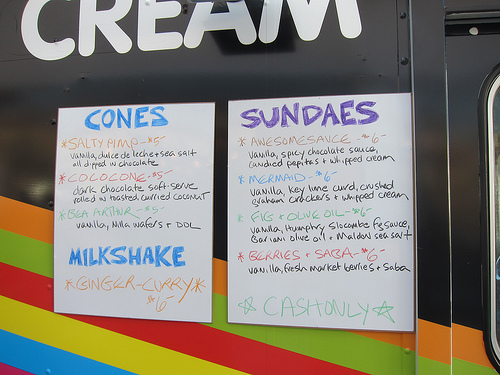 CREAM
CONES
*SALTY PIMP - $5-
vanilla, dulce de leche + sea salt
all dipped in chocolate
*COCOCONE - $5-
dark chocolate soft-serve
rolled in toasted curried coconut
*BEA ARTHUR - $5-
vanilla, nilla wafers + DDL
MILKSHAKE
*GINGER-CURRY*
$6-
SUNDAES
*AWESOMESAUCE - $6-
vanilla, spicy chocolate sauce,
candied pepitas + whipped cream
*MERMAID - $6-
vanilla, key lime curd, crushed
graham crackers + whipped cream
*FIG + OLIVE OIL - $6-
vanilla, Humphry Slocombe fig sauce,
Bariani olive oil + Maldon sea salt
*BERRIES + SABA - $6-
vanilla, fresh market berries + Saba
☆ CASH ONLY ☆